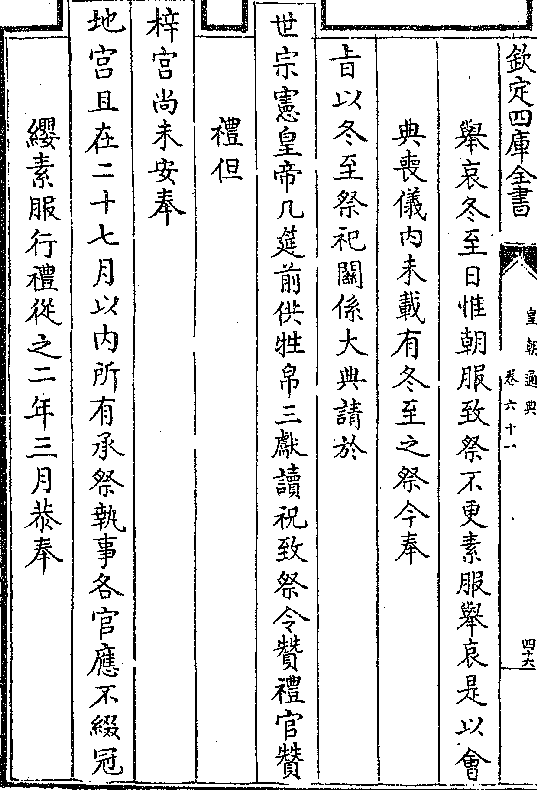 欽定四庫全書
皇朝通典
卷六十一
四十六
舉哀冬至日惟朝服致祭不更素服舉哀是以會
典喪儀內未載有冬至之祭今奉
㫖以冬至祭祀關係大典請於
世宗憲皇帝几筵前供牲帛三獻讀祝致祭令贊禮官贊
禮但
梓宮尚未安奉
地宮且在二十七月以內所有承祭執事各官應不綴冠
纓素服行禮從之二年三月恭奉